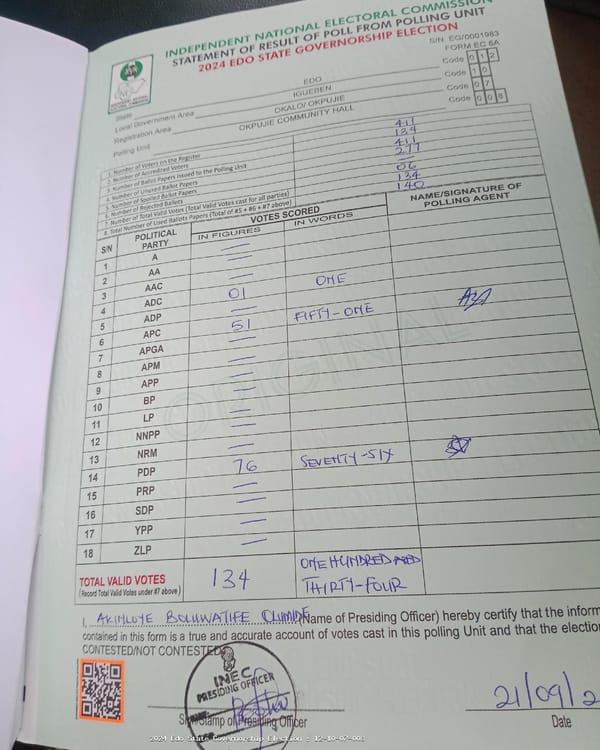 INDEPENDENT NATIONAL ELECTORAL COMMISSION
STATEMENT OF RESULT OF POLL FROM POLLING UNIT
2024 EDO STATE GOVERNORSHIP ELECTION
S/N EG/0001983
FORM EC 8A
State EDO Code 0 1 2
Local Government Area IGUEBEN Code 1 0
Registration Area OKALO/ OKPUJIE Code 0 7
Polling Unit OKPUJIE COMMUNITY HALL Code 0 0
1. Number of Voters on the Register 411
2. Number of Accredited Voters 134
3. Number of Ballot Papers Issued to the Polling Unit 411
4. Number of Unused Ballot Papers 277
5. Number of Spoiled Ballot Papers —
6. Number of Rejected Ballots 06
7. Number of Total Valid Votes (Total Valid Votes cast for all parties) 134
8. Total Number of Used Ballots Papers (Total of #5 + #6 + #7 above) 140
S/N POLITICAL PARTY VOTES SCORED NAME/SIGNATURE OF POLLING AGENT
IN FIGURES IN WORDS
1 A —
2 AA —
3 AAC —
4 ADC 01 ONE
5 ADP —
6 APC 51 FIFTY-ONE
7 APGA —
8 APM —
9 APP —
10 BP —
11 LP —
12 NNPP —
13 NRM —
14 PDP 76 SEVENTY-SIX
15 PRP —
16 SDP —
17 YPP —
18 ZLP —
ORIGINAL
TOTAL VALID VOTES 134 ONE HUNDRED AND
(Record Total Valid Votes under #7 above) THIRTY-FOUR
I, AKINLOYE BOLUWATIFE (Name of Presiding Officer) hereby certify that the inform
contained in this form is a true and accurate account of votes cast in this polling Unit and that the election
CONTESTED/NOT CONTESTED
INEC
PRESIDING OFFICER
Stamp of Presiding Officer
21/09/2
Date
2024 Edo State Governorship Election - 12-10-07-00